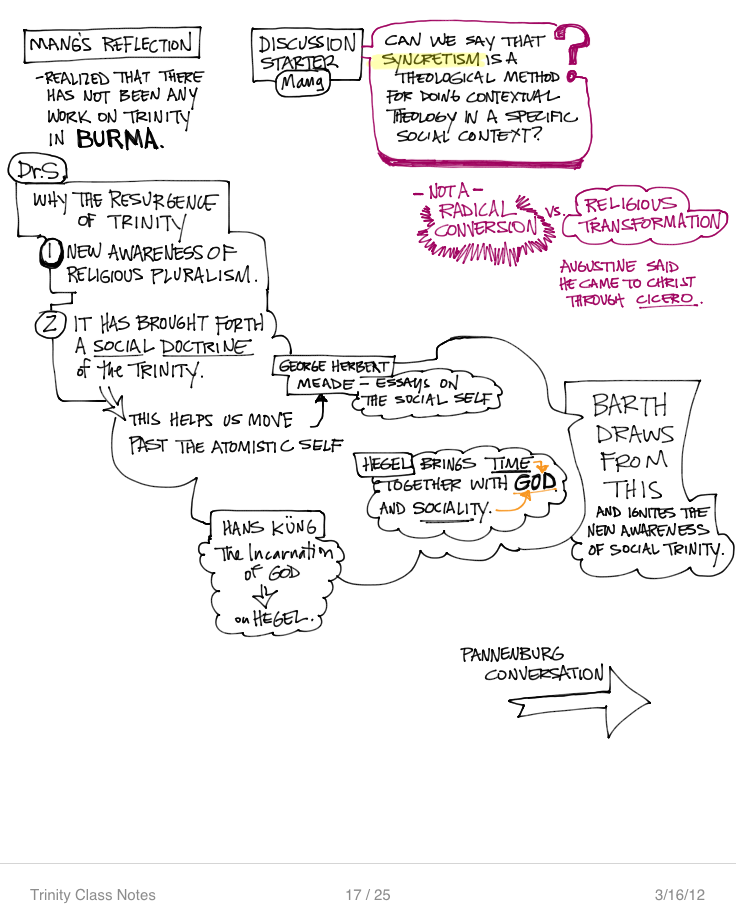 MANG'S REFLECTION
-REALIZED THAT THERE
HAS NOT BEEN ANY
WORK ON TRINITY
IN BURMA.
DISCUSSION
STARTER
Mang
CAN WE SAY THAT
SYNCRETISM IS A
THEOLOGICAL METHOD
FOR DOING CONTEXTUAL
THEOLOGY IN A SPECIFIC
SOCIAL CONTEXT?
?
- NOT A -
RADICAL
CONVERSION
VS.
RELIGIOUS
TRANSFORMATION
AUGUSTINE SAID
HE CAME TO CHRIST
THROUGH CICERO.
Dr.S.
WHY THE RESURGENCE
OF TRINITY
1 NEW AWARENESS OF
RELIGIOUS PLURALISM.
2 IT HAS BROUGHT FORTH
A SOCIAL DOCTRINE
of the TRINITY.
THIS HELPS US MOVE
PAST THE ATOMISTIC SELF
GEORGE HERBERT
MEADE - ESSAYS ON
THE SOCIAL SELF
HEGEL BRINGS TIME
TOGETHER WITH GOD
AND SOCIALITY.
BARTH
DRAWS
FROM
THIS
AND IGNITES THE
NEW AWARENESS
OF SOCIAL TRINITY.
HANS KÜNG
The Incarnation
OF GOD
on HEGEL.
PANNENBURG
CONVERSATION
Trinity Class Notes
17 / 25
3/16/12